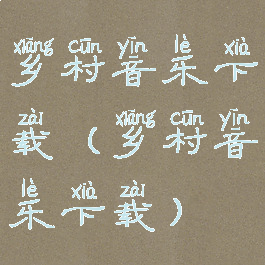 xiāng cūn yīn lè xià
乡村音乐下
zài xiāng cūn yīn
载（乡村音
lè xià zài
乐下载）